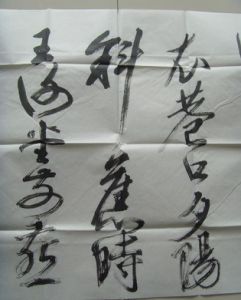 衣巷口夕陽
斜 舊時
王謝堂前燕